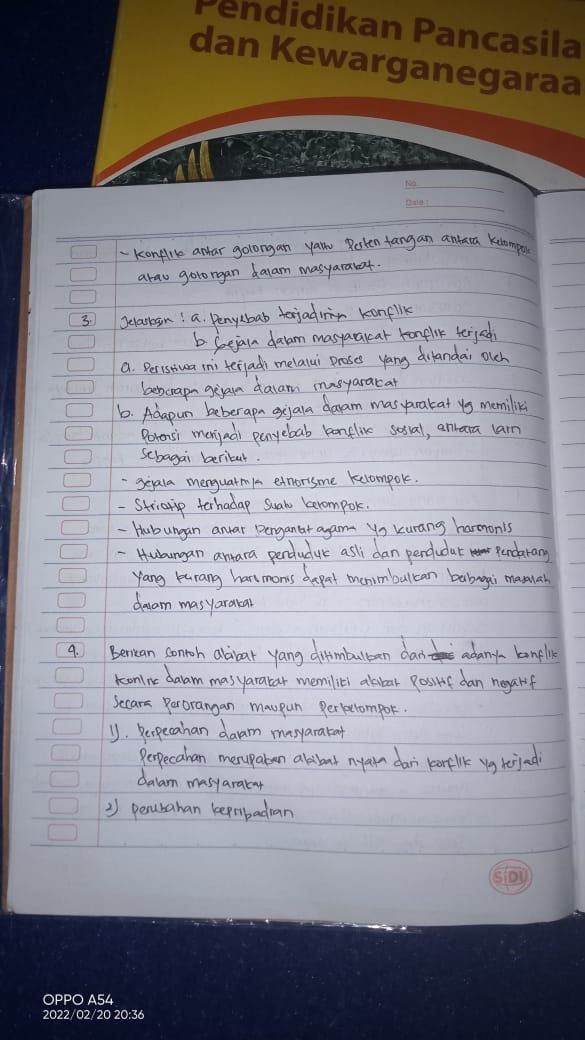 Pendidikan Pancasila
dan Kewarganegaraa
No
Date :
- Konflik antar golongan yaitu Pertentangan antara kelompok
atau golongan dalam masyarakat.
3. Jelaskan ! a. Penyebab terjadinya konflik
b. Gejala dalam masyarakat konflik terjadi
a. Peristiwa ini terjadi melalui proses yang ditandai oleh
beberapa gejala dalam masyarakat
b. Adapun beberapa gejala dalam masyarakat yg memiliki
Potensi menjadi penyebab konflik sosial, antara lain
sebagai berikut.
- gejala menguatnya etnorisme kelompok.
- Striotip terhadap suatu kelompok.
- Hubungan antar Penganut agama yg kurang harmonis
- Hubungan antara penduduk asli dan penduduk Pendatang
yang kurang harmonis dapat menimbulkan babagai masalah
dalam masyarakat
4. Berikan contoh akibat yang ditimbulkan dari adanya konflik
konlik dalam masyarakat memiliki akibat Positif dan negatif
secara Perorangan maupun Perkelompok.
1). Perpecahan dalam masyarakat
Perpecahan merupakan akibat nyata dari konflik yg terjadi
dalam masyarakat
2) perubahan kepribadian
SiDU
OPPO A54
2022/02/20 20:36